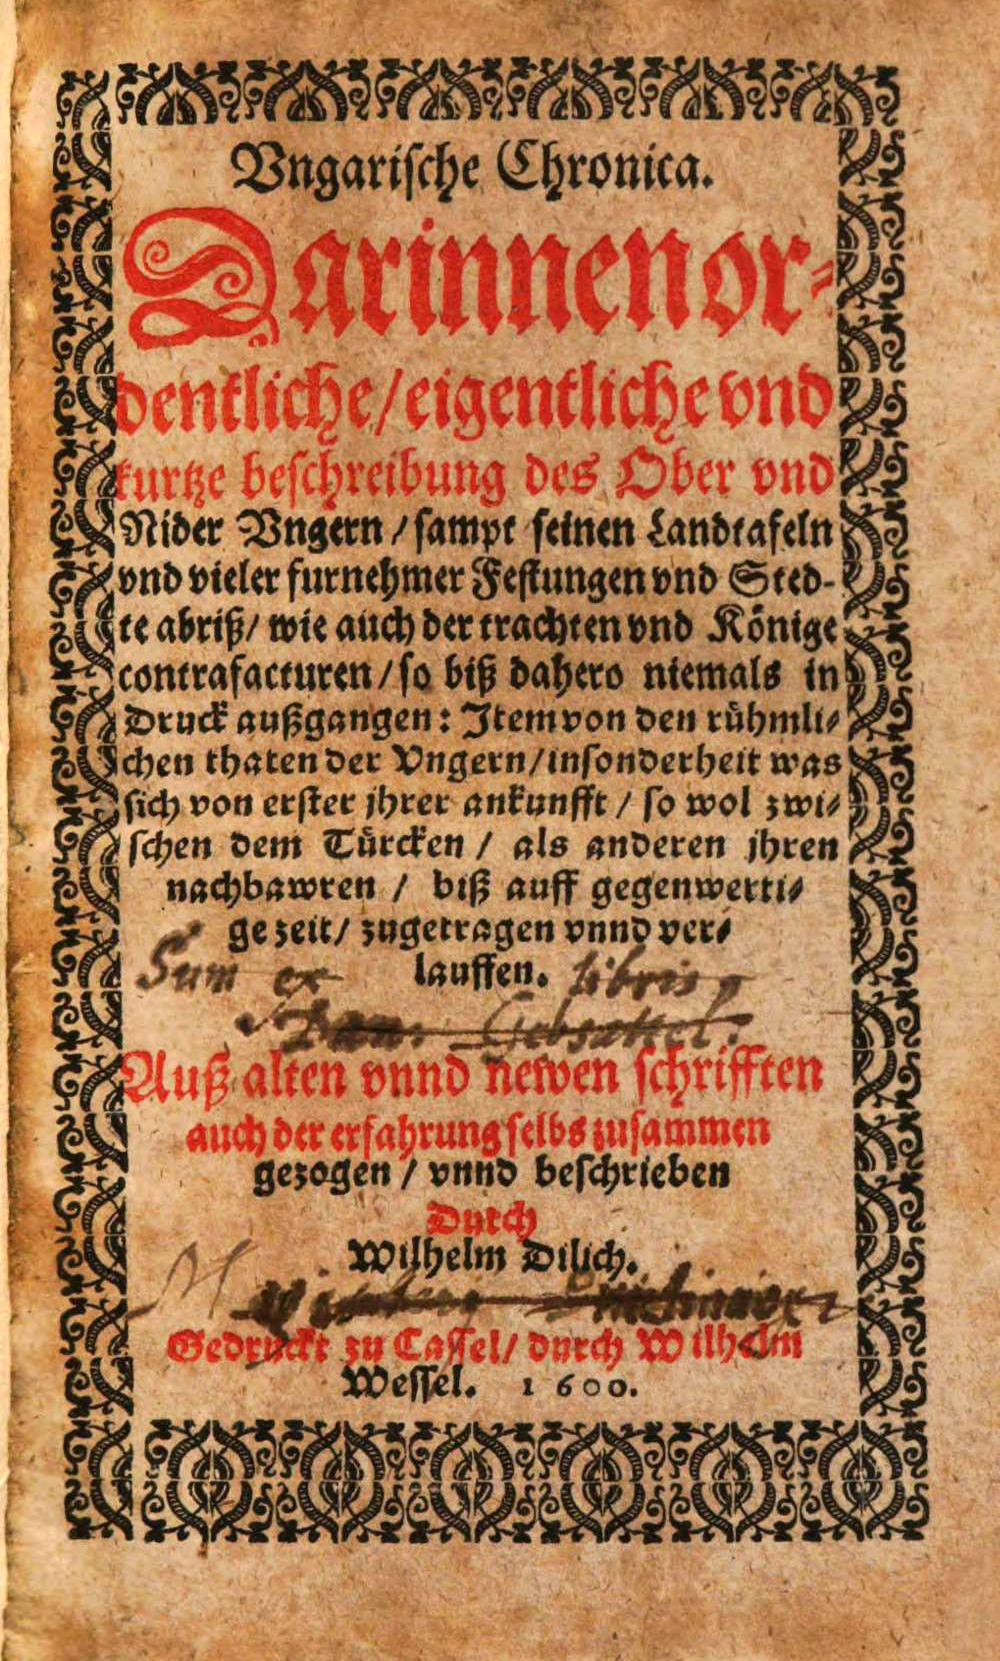 Vngarische Chronica.
Darinnen or-
dentliche/ eigentliche vnd
kurtze beschreibung des Ober vnd
Nider Vngern / sampt seinen Landtafeln
vnd vieler furnehmer Festungen vnd Sted-
te abriß/ wie auch der trachten vnd Könige
contrafacturen / so biß dahero niemals in
Druck außgangen: Item von den rühmli-
chen thaten der Vngern/ insonderheit was
sich von erster jhrer ankunfft / so wol zwi-
schen dem Türcken / als anderen jhren
nachbawren / biß auff gegenwerti-
ge zeit/ zugetragen vnnd ver-
lauffen.
Sum ex libris
Auß alten vnnd newen schrifften
auch der erfahrung selbs zusammen
gezogen / vnnd beschrieben
Durch
Wilhelm Dilich.
Gedruckt zu Cassel/ durch Wilhelm
Wessel. 1600.